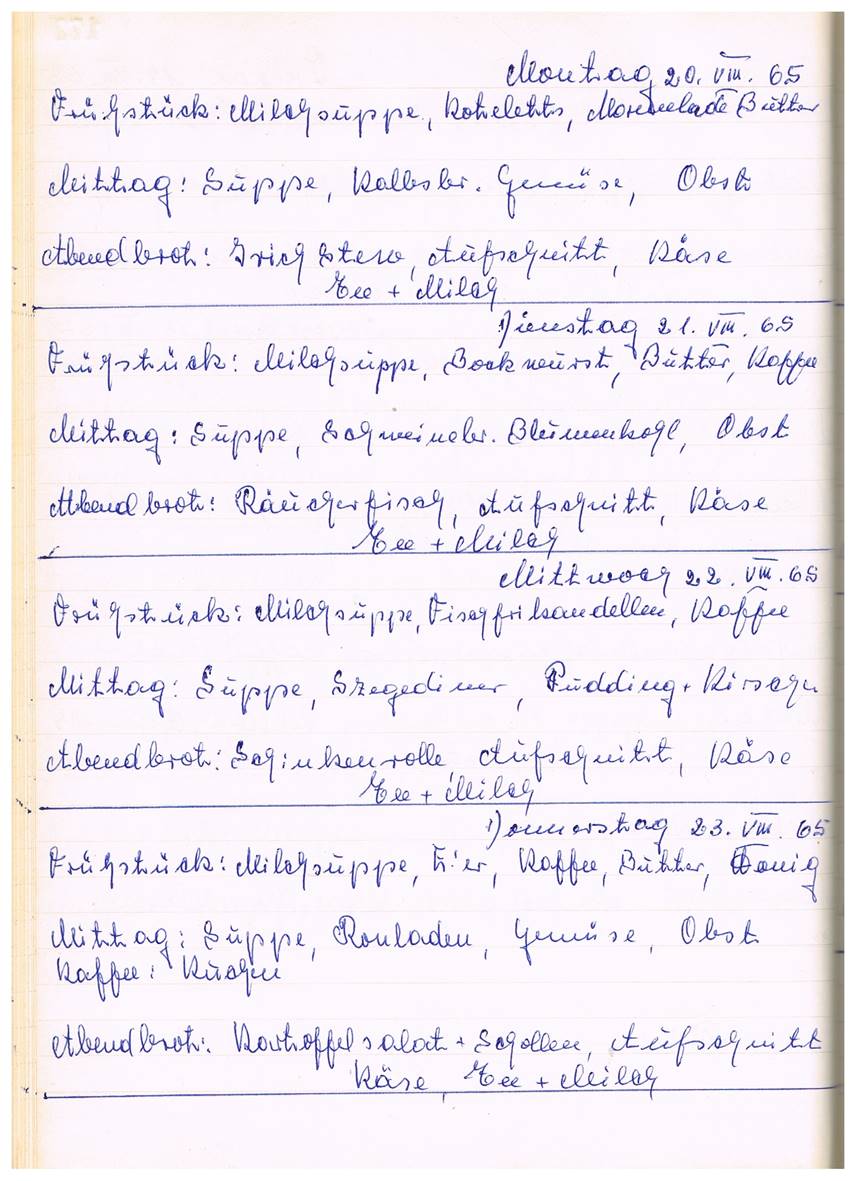 Montag 20. VIII. 65
Frühstück: Milchsuppe, Koteletts, Marmelade Butter
Mittag: Suppe, Kalbsbr. Gemüse, Obst
Abendbrot: Aufschnitt, Käse
Tee + Milch
Dienstag 21. VIII. 65
Frühstück: Milchsuppe, Bockwurst, Butter, Kaffee
Mittag: Suppe, Schweinebr. Blumenkohl, Obst
Abendbrot: Räucherfisch, Aufschnitt, Käse
Tee + Milch
Mittwoch 22. VIII. 65
Frühstück: Milchsuppe, Fischfrikandellen, Kaffee
Mittag: Suppe, Szegediner, Pudding + Kirschen
Abendbrot: Schinkenrolle, Aufschnitt, Käse
Tee + Milch
Donnerstag 23. VIII. 65
Frühstück: Milchsuppe, Eier, Kaffee, Butter, Honig
Mittag: Suppe, Rouladen, Gemüse, Obst
Kaffee: Kuchen
Abendbrot: Kartoffelsalat + Schollen, Aufschnitt
Käse, Tee + Milch